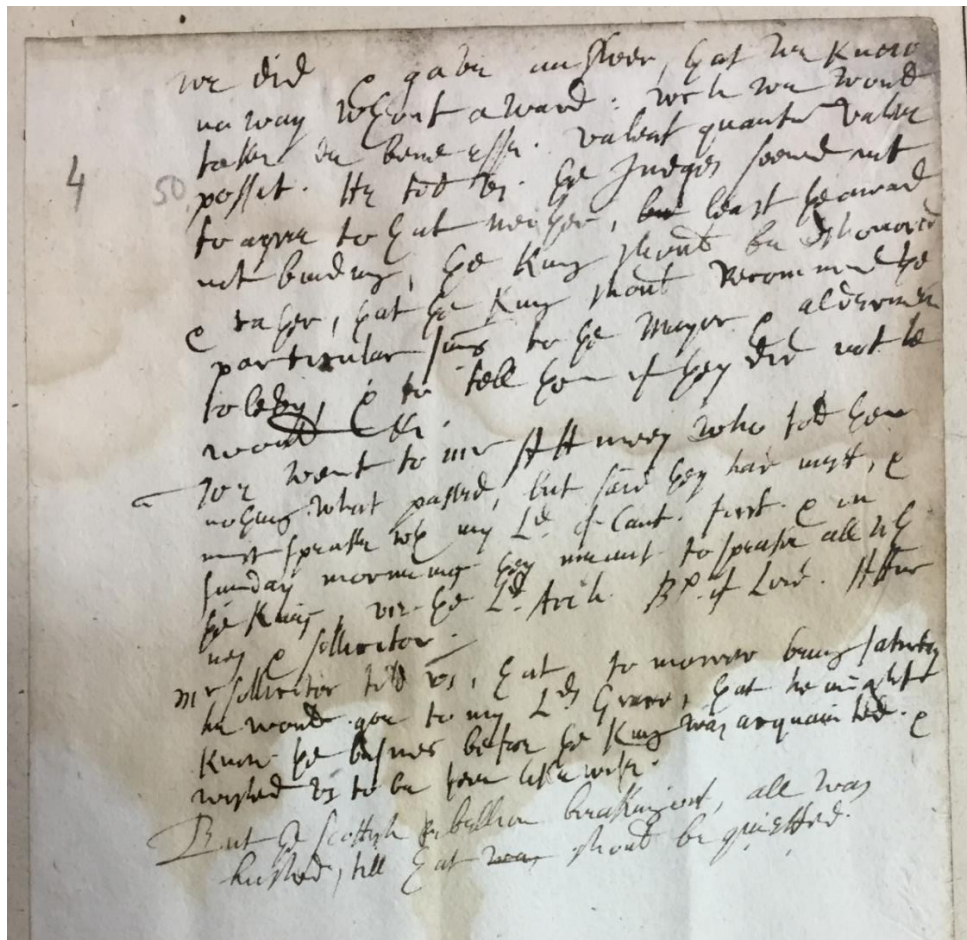 we did & gave answer, that we know
no way without award: wch we would
4
50
take de bene esse. valeat quantū valere
possit. He told vs. the Judges seemed not
to agree to that neither, but least the award
not binding, the King should be dishonored
& rather, that the King should recommend the
particular sūs to the Mayor & aldermen
to levy, & to tell them if they did not he
would &c.
We went to mr Atturney who told
nothing what passed, but said they had mett, &
must speake wth my Ld. of Cant. first. & on
sunday morninge they meant to speake all wth
the King, viz. the Ld. Arch. Bp. of Lond. Attur
ney & sollicitor.
Mr sollicitor told vs, that to morrow being saturday
he would goe to my Lds Grace, that he might
know the busines before the King was acquainted. &
wished vs to be there likewise.
But the scottish rebellion breaking out, all was
hushed, till that was should be quietted.